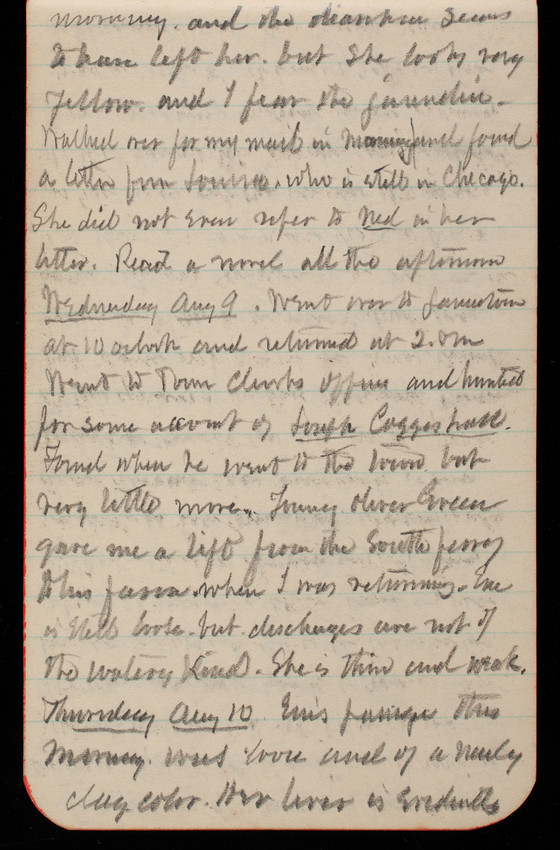 morning. and the diarrhea seems
to have left her. but she looks very
yellow. and I fear the jaundice.
Walked over for my mail in morning and found
a letter from Louise. who is still in Chicago.
She did not even refer to Ned in her
letter. Read a novel all the afternoon
Wednesday Aug 9. Went over to Jamestown
at 10 oclock and returned at 2.
Went to Town Clerks office and hunted
for some account of Joseph Coggeshall.
Found when he went to the town but
very little more. Young Oliver Green
gave me a lift from the South ferry
to his farm. when I was returning.
is still loose. but discharges are not of
the watery kind. She is thin and weak.
Thursday Aug 10 Ems passage this
morning. was loose and of a nearly
clay color. Her liver is evidently